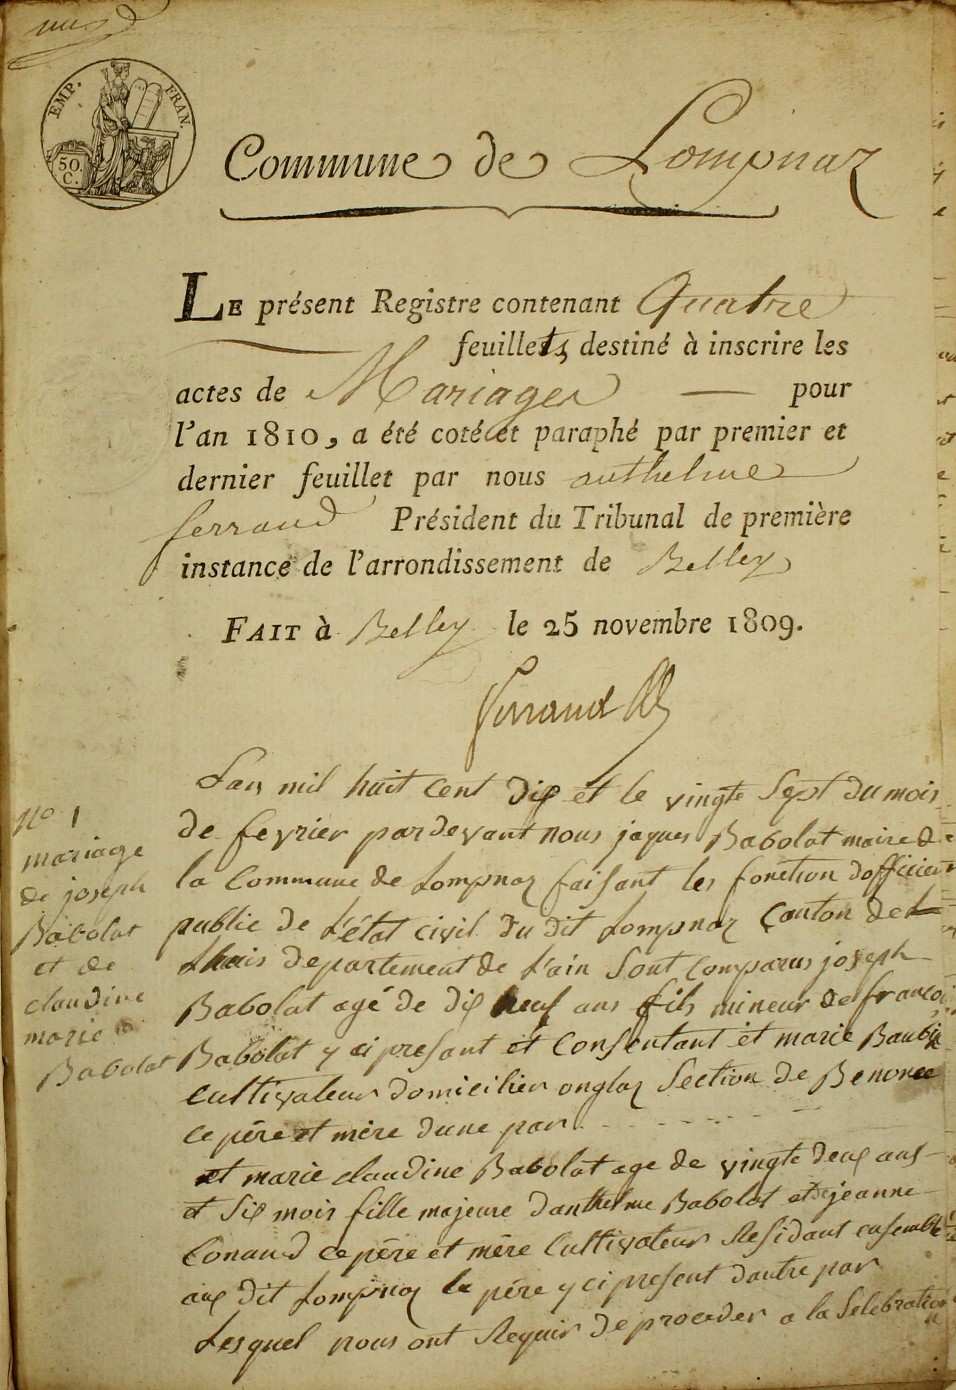 EMP. FRAN.
50. C.
Commune de Lompnaz
LE présent Registre contenant Quatre
feuillets, destiné à inscrire les
actes de Mariages — pour
l'an 1810, a été coté et paraphé par premier et
dernier feuillet par nous anthelme
ferrand Président du Tribunal de première
instance de l'arrondissement de Belley
FAIT à Belley le 25 novembre 1809.
ferrand
n° 1
mariage
de joseph
Babolat
et de
claudine
marie
Babolat
Lan mil huit cent dix et le vingte Sept du mois
de fevrier pardevant nous jaques Babolat maire de
la Commune de Lompnaz faisant les fonction dofficier
public de L'état civil du dit Lompnaz Canton de L
huis departement de L'ain Sont Comparus joseph
Babolat agé de dix neuf ans fils mineur de francois
Babolat y ci presant et Consentant et marie
Cultivateur domicilier Section de Benonce
ce père et mère dune par
et marie claudine Babolat age de vingte deux ans
et Six mois fille majeure danthelme Babolat et jeanne
Conand ce père et mère Cultivateur Residant ensemble
aux dit Lompnaz le père y ci present dautre par
Lesquel nous ont Requir de proceder a la Selebration